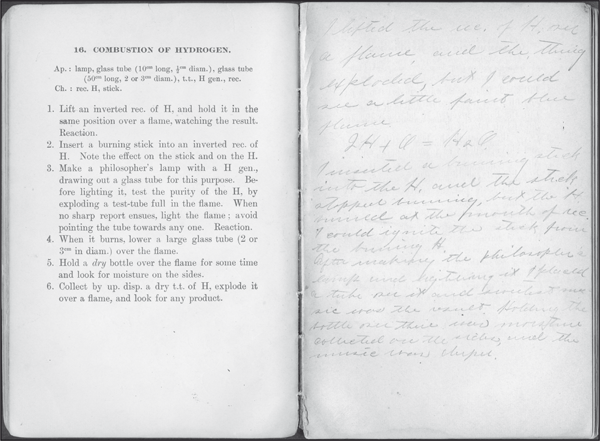 16. COMBUSTION OF HYDROGEN.
Ap.: lamp, glass tube (10cm long, ½cm diam.), glass tube
(50cm long, 2 or 3cm diam.), t.t., H gen., rec.
Ch.: rec. H, stick.
1. Lift an inverted rec. of H, and hold it in the
same position over a flame, watching the result.
Reaction.
2. Insert a burning stick into an inverted rec. of
H. Note the effect on the stick and on the H.
3. Make a philosopher's lamp with a H gen.,
drawing out a glass tube for this purpose. Be-
fore lighting it, test the purity of the H, by
exploding a test-tube full in the flame. When
no sharp report ensues, light the flame; avoid
pointing the tube towards any one. Reaction.
4. When it burns, lower a large glass tube (2 or
3cm in diam.) over the flame.
5. Hold a dry bottle over the flame for some time
and look for moisture on the sides.
6. Collect by up. disp. a dry t.t. of H, explode it
over a flame, and look for any product.
I lifted the rec. of H. over
a flame, and the thing
exploded, but I could
see a little faint blue
flame
2H + O = H2O
I inserted a burning stick
into the H, and the stick
stopped burning, but the H
burned at the mouth of rec.
I could ignite the stick from
the burning H.
After making the philosopher's
lamp and lighting it I placed
a tube over it and
sic was the Holding the
bottle over there was moisture
collected on the sides, and the
music was